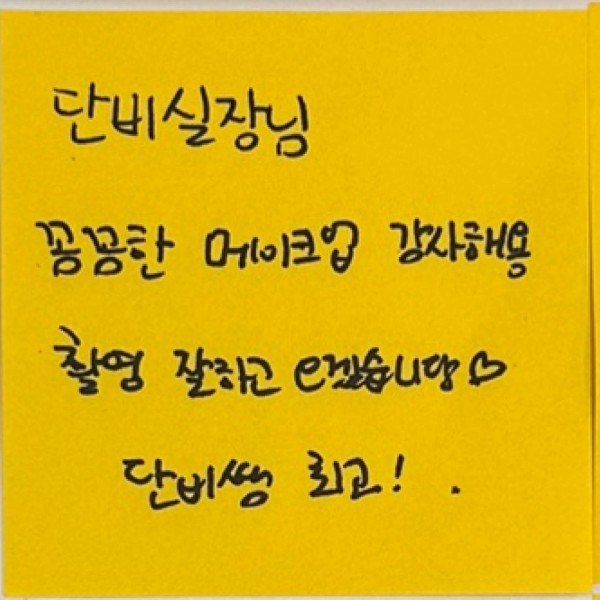 단비실장님
꼼꼼한 메이크업 감사해용
촬영 잘하고 오겠습니당♡
단비쌤 최고! .